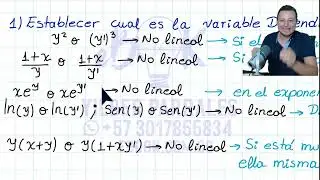 1) Establecer cual es la variable Depend
y² o (y')³ → No lineal → Si el
1+x/y o 1+x/y' → No lineal → Si
xe^y o xe^y' → No lineal → en el exponen
ln(y) o ln(y') ; Sen(y) o Sen(y') → No lineal → D
y(x+y) o y(1+xy') → No lineal → Si está mu
ella misma
+57 3017855834